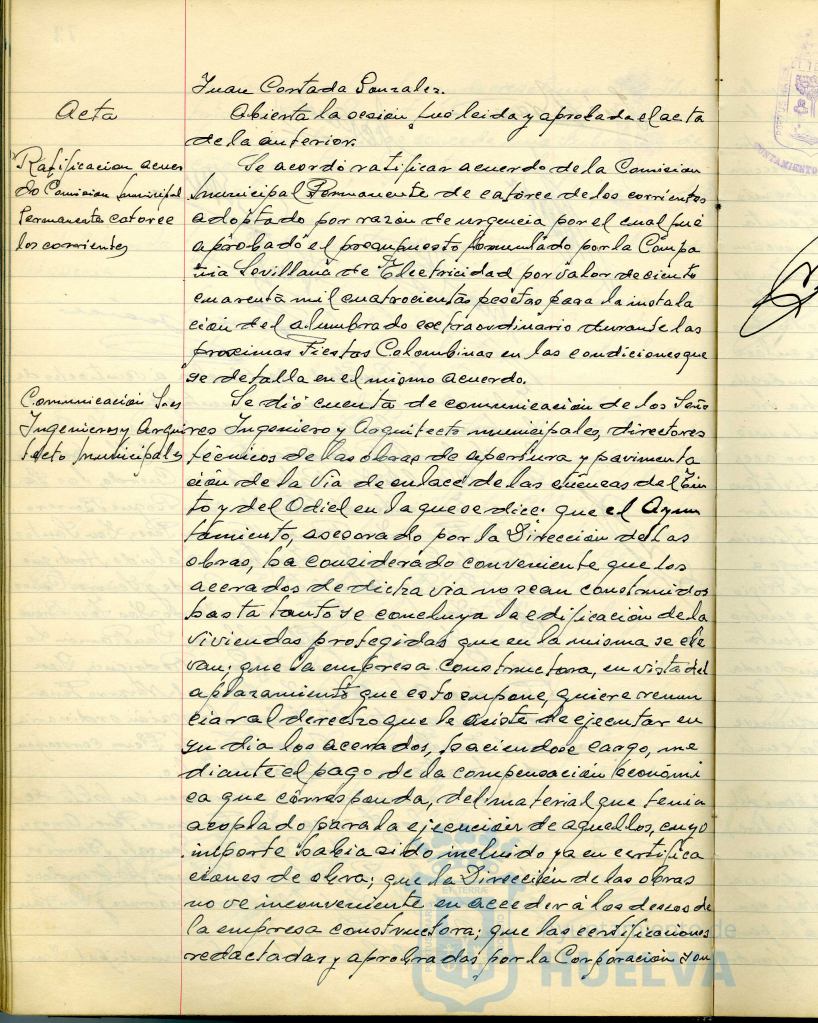 Juan Cortada Gonzalez.
Acta
Abierta la sesión, fué leida y aprobada el acta
de la anterior.
Ratificacion acuer
do Comision municipal
Permanente catorce
los corrientes
Se acordó ratificar acuerdo de la Comision
municipal Permanente de catorce de los corrientes
adoptado por razón de urgencia por el cual fué
aprobado el presupuesto formulado por la Compa
ñia Sevillana de Electricidad por valor de ciento
cuarenta mil cuatrocientas pesetas para la instala
ción del alumbrado extraordinario durante las
proximas Fiestas Colombinas en las condiciones que
se detalla en el mismo acuerdo.
Comunicación Sres
Ingenieros y Arqui
tecto municipales
Se dió cuenta de comunicación de los Seño
res Ingeniero y Arquitecto municipales, directores
técnicos de las obras de apertura y pavimenta
ción de la Vía de enlace de las cuencas del Tin
to y del Odiel en la que se dice: que el Ayun
tamiento, asesorado por la Dirección de las
obras, ha considerado conveniente que los
acerados de dicha via no sean construidos
hasta tanto se concluya la edificación de la
viviendas protegidas que en la misma se ele
van; que la empresa constructora, en vista del
aplazamiento que esto supone, quiere renun
ciar al derecho que le asiste de ejecutar en
su dia los acerados, haciendose cargo, me
diante el pago de la compensación económi
ca que corresponda, del material que tenia
acoplado para la ejecución de aquellos, cuyo
importe habia sido incluido ya en certifica
ciones de obra; que la Dirección de las obras
no ve inconveniente en acceder á los deseos de
la empresa constructora; que las certificaciones
redactadas y aprobadas por la Corporación son
Ayuntamiento de
HUELVA